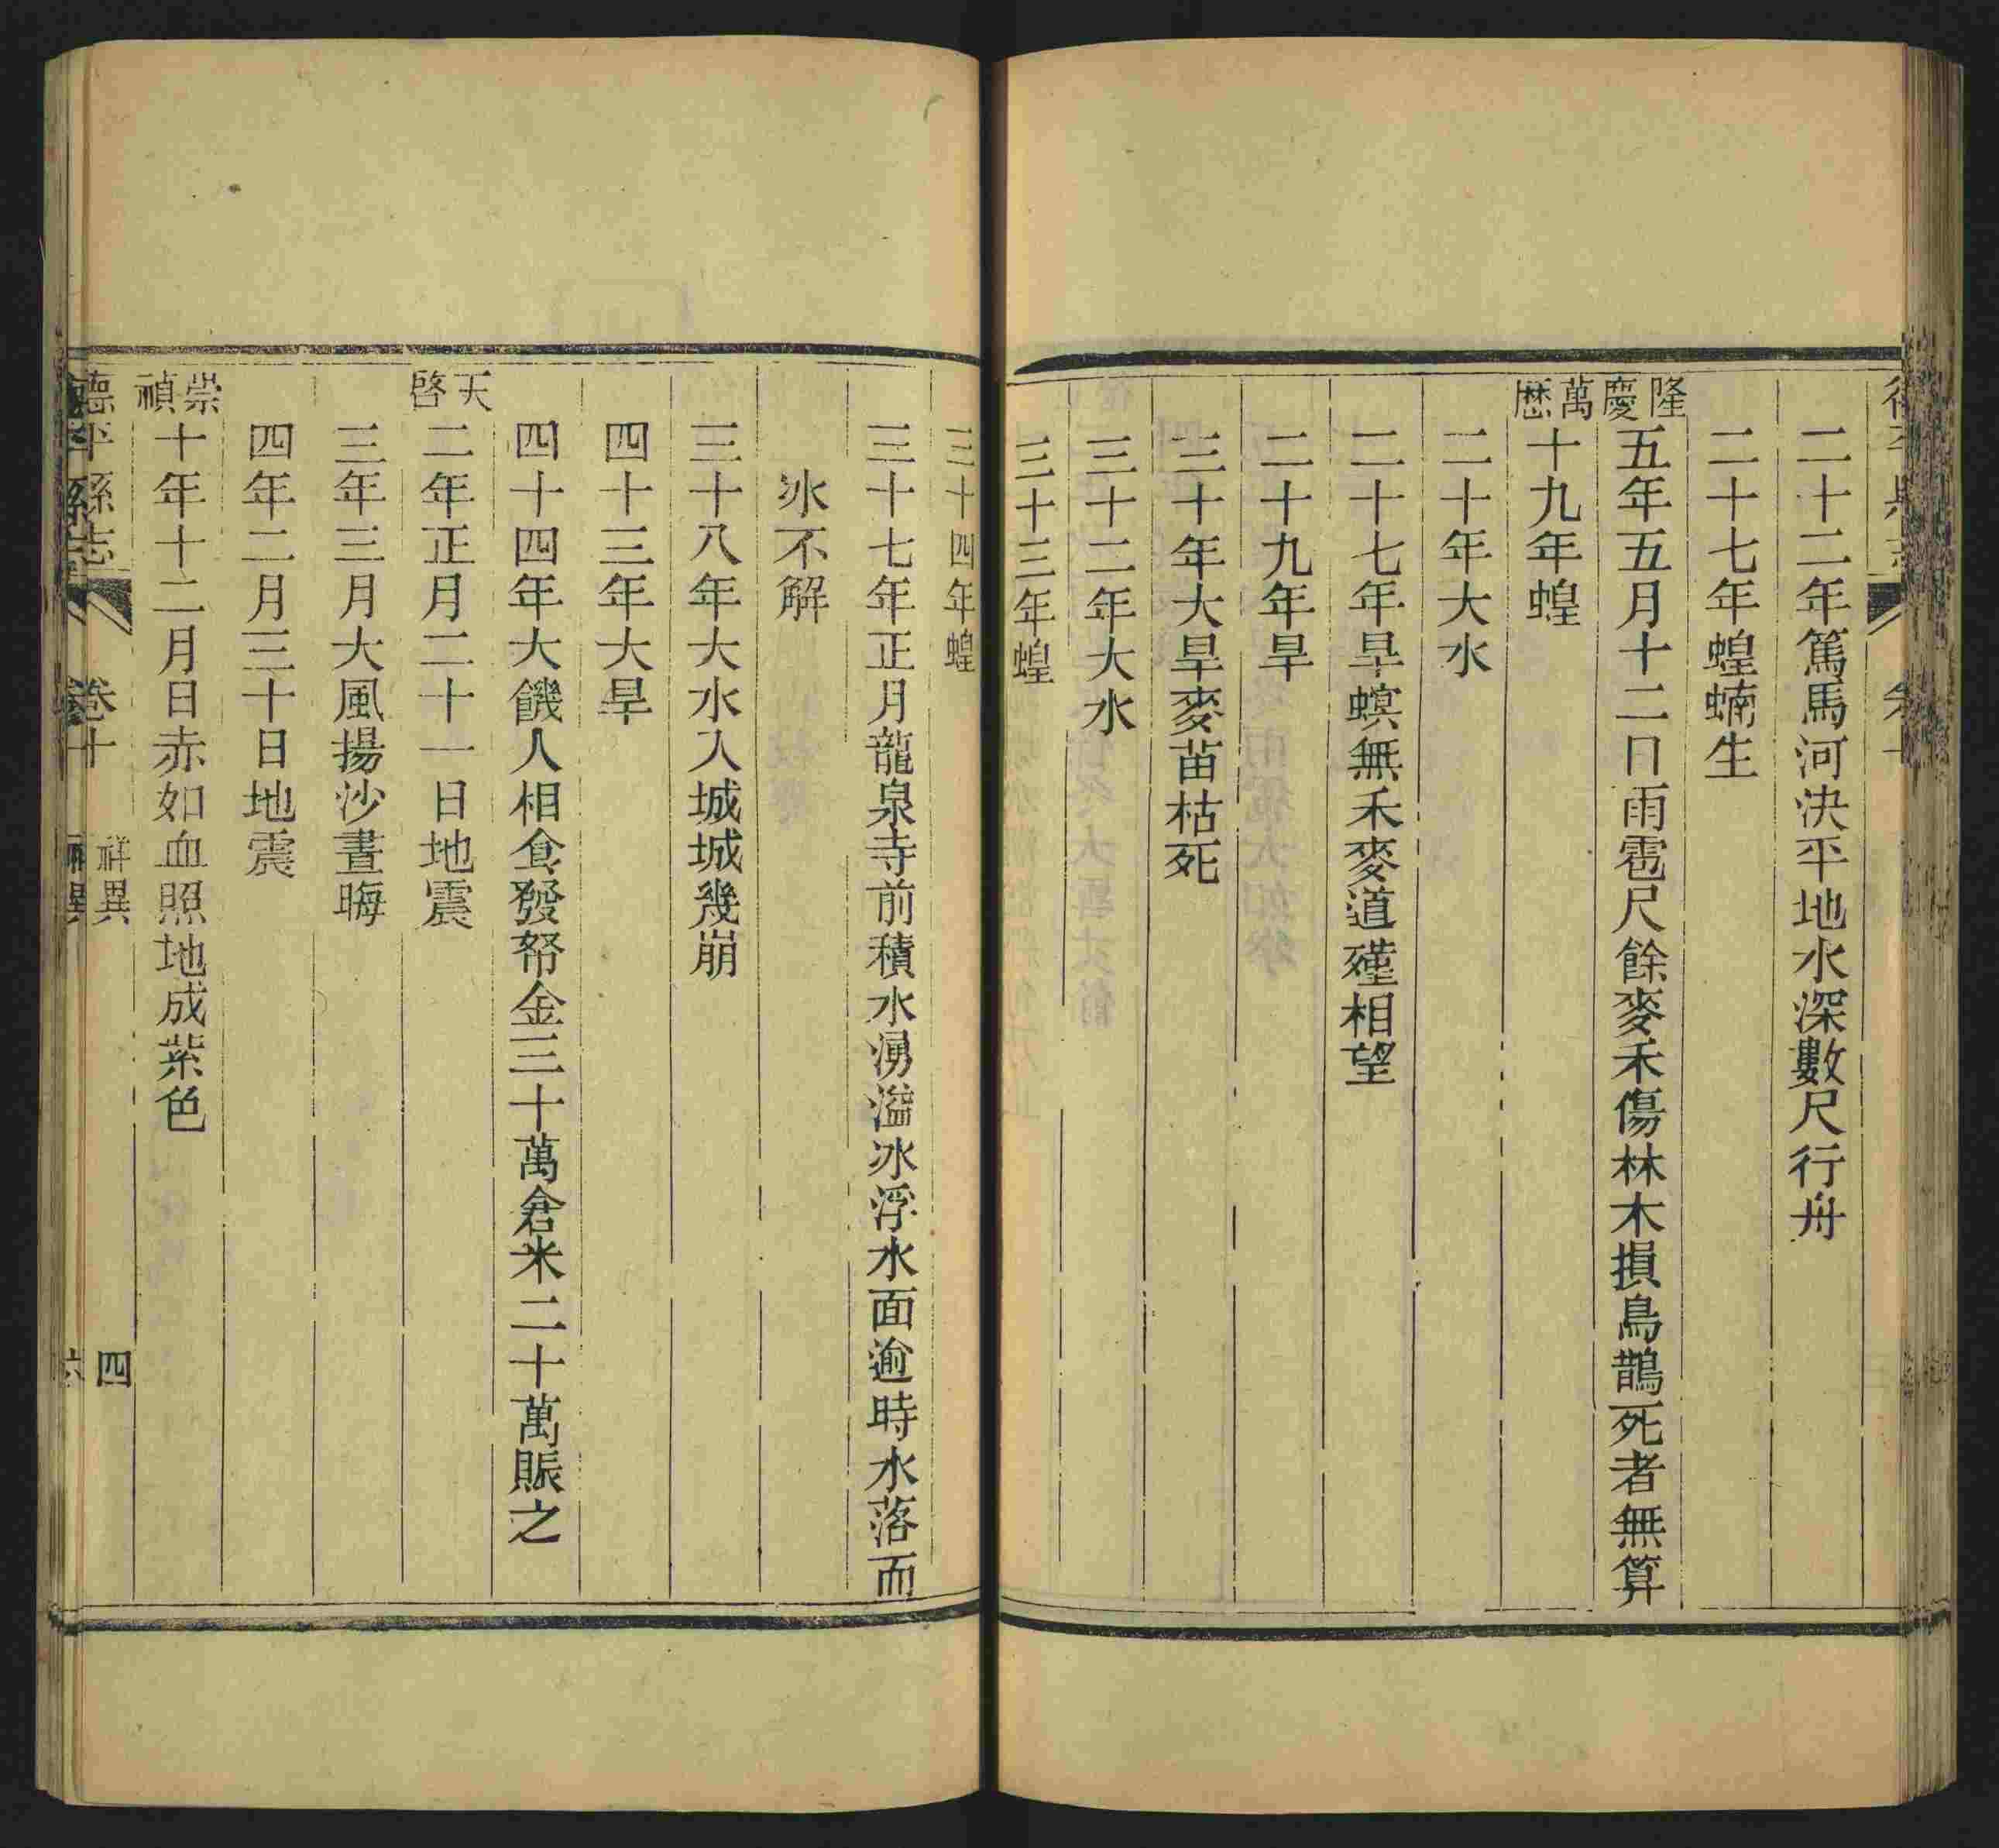 二十二年篤馬河決平地水深數尺行舟
二十七年蝗蝻生
隆慶五年五月十二日雨雹尺餘麥禾傷林木損鳥鵲死者無算
萬厯十九年蝗
二十年大水
二十七年旱螟無禾麥道殣相望
二十九年旱
三十年大旱麥苗枯死
三十二年大水
三十三年蝗
三十四年蝗
三十七年正月龍泉寺前積水湧溢冰浮水面逾時水落而
冰不解
三十八年大水入城城幾崩
四十三年大旱
四十四年大饑人相食發帑金三十萬倉米二十萬賑之
天啓二年正月二十一日地震
三年三月大風揚沙晝晦
四年二月三十日地震
崇禎十年十二月日赤如血照地成紫色
德平縣志 卷十 祥異 四